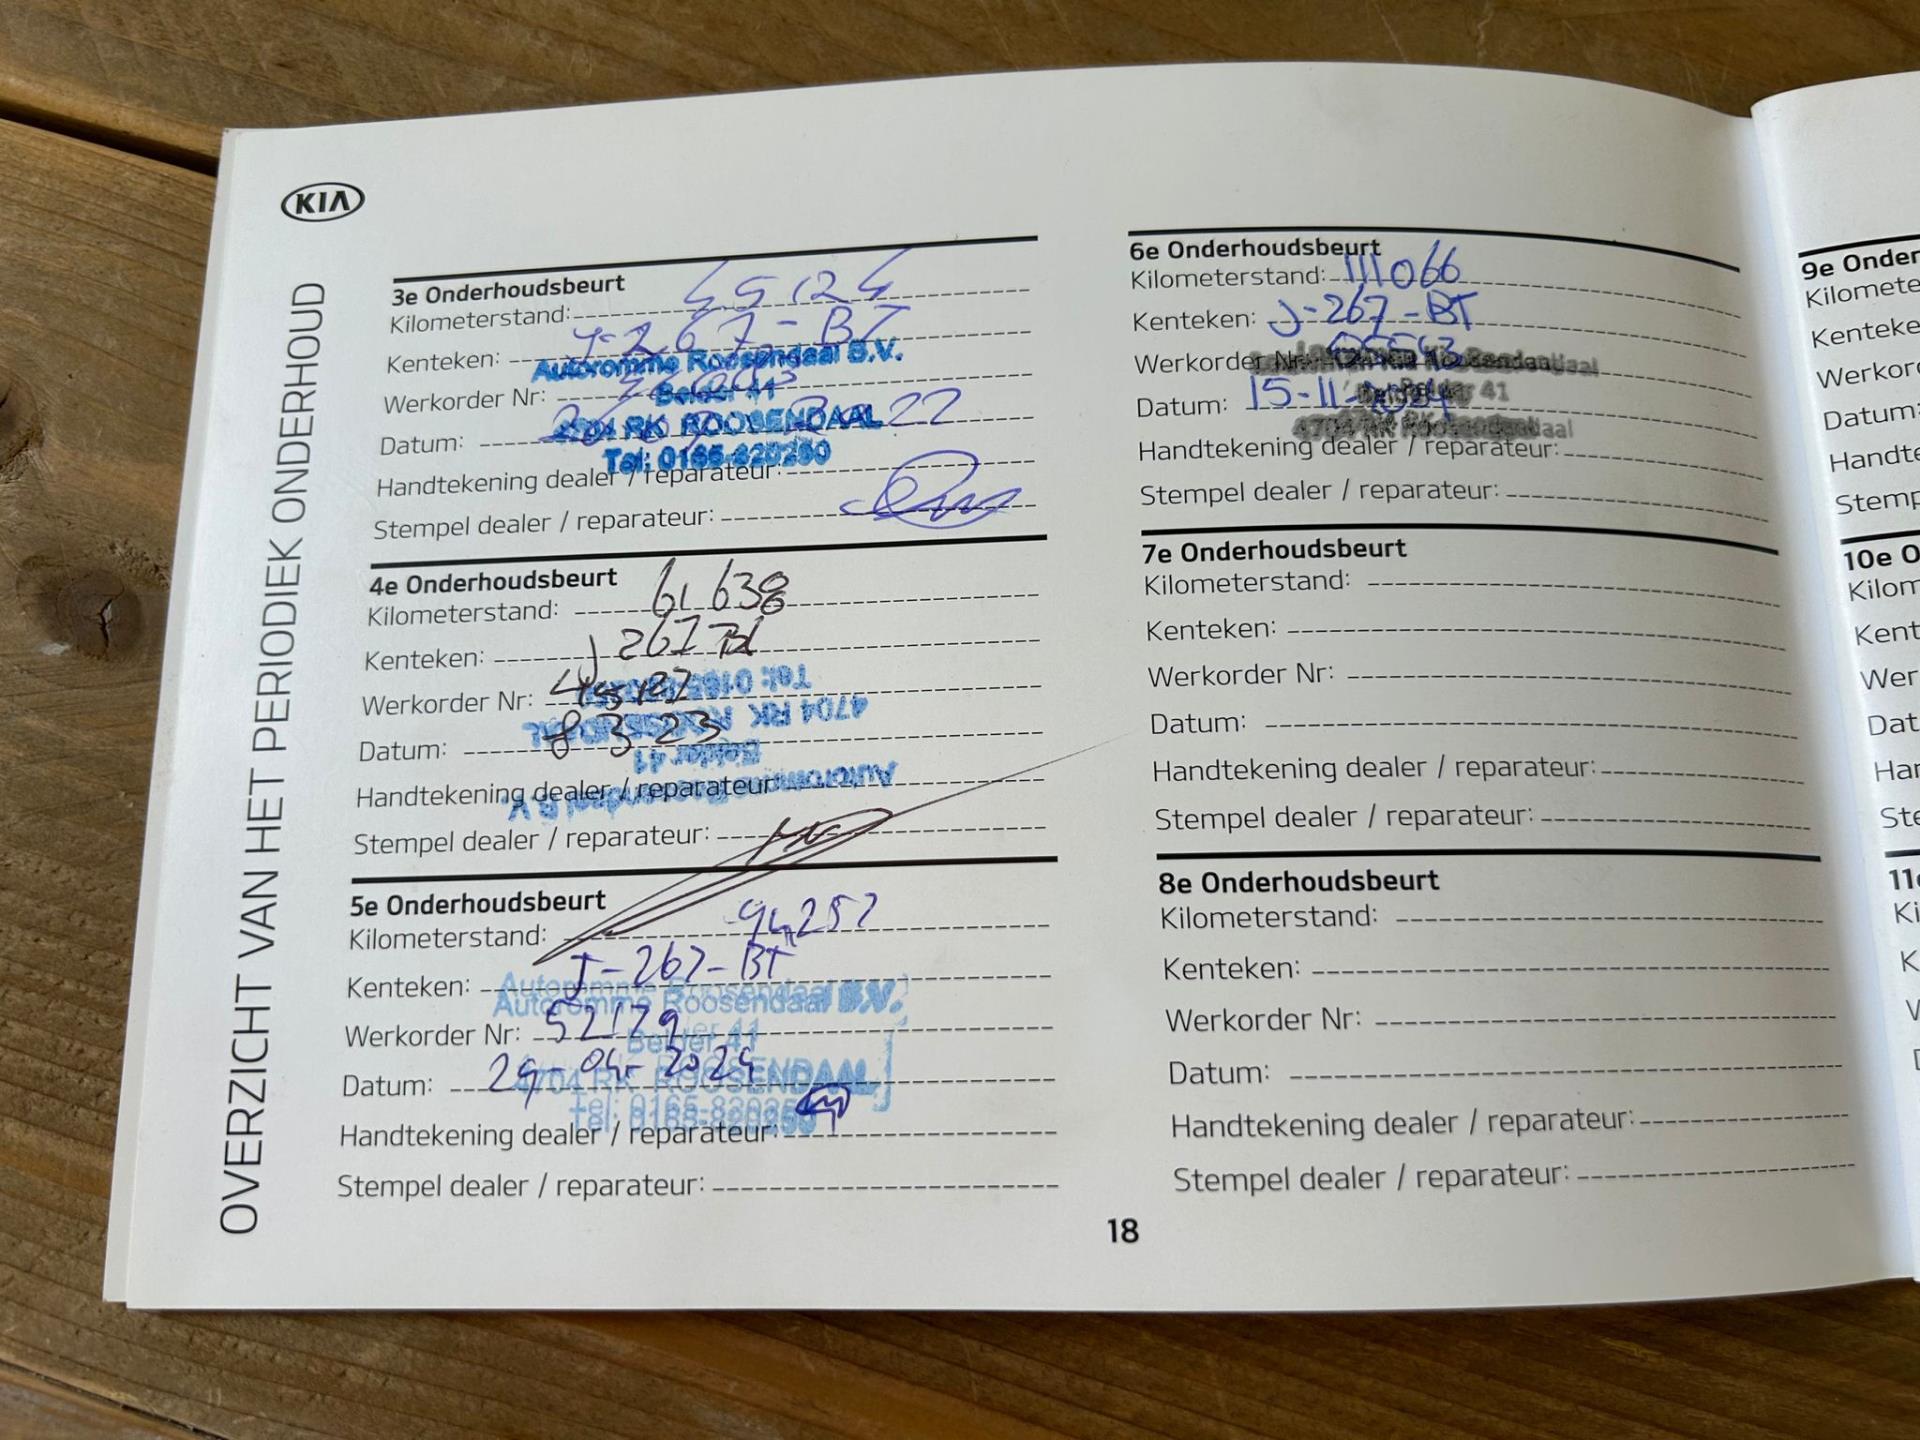 KIA
OVERZICHT VAN HET PERIODIEK ONDERHOUD
3e Onderhoudsbeurt
Kilometerstand: 45124
Kenteken: J-267-BT
Autoromme Roosendaal B.V.
Werkorder Nr:
Belder 41
Datum: 2022
4704 RK ROOSENDAAL
Tel: 0165-820250
Handtekening dealer / reparateur:
Stempel dealer / reparateur:
4e Onderhoudsbeurt
Kilometerstand: 61638
Kenteken: J 267
Werkorder Nr: 45127
Datum: 8 3 23
Tel: 0165-820250
4704 RK ROOSENDAAL
Belder 41
Autoromme Roosendaal B.V.
Handtekening dealer / reparateur:
Stempel dealer / reparateur:
5e Onderhoudsbeurt
Kilometerstand: 94257
Kenteken: J-267-BT
Autoromme Roosendaal B.V.
Werkorder Nr: 52179
Belder 41
Datum: 29-04-2024
4704 RK ROOSENDAAL
Tel: 0165-820250
Handtekening dealer / reparateur:
Stempel dealer / reparateur:
6e Onderhoudsbeurt
Kilometerstand: 111066
Kenteken: J-267-BT
Werkorder Nr:
Roosendaal
Datum: 15-11-2024
Belder 41
4704 RK Roosendaal
Handtekening dealer / reparateur:
Stempel dealer / reparateur:
7e Onderhoudsbeurt
Kilometerstand:
Kenteken:
Werkorder Nr:
Datum:
Handtekening dealer / reparateur:
Stempel dealer / reparateur:
8e Onderhoudsbeurt
Kilometerstand:
Kenteken:
Werkorder Nr:
Datum:
Handtekening dealer / reparateur:
Stempel dealer / reparateur:
18
9e Onder
Kilomete
Kenteke
Werkor
Datum:
Handte
Stemp
10e O
Kilom
Kent
Wer
Dat
Har
Ste
11e
Ki
K